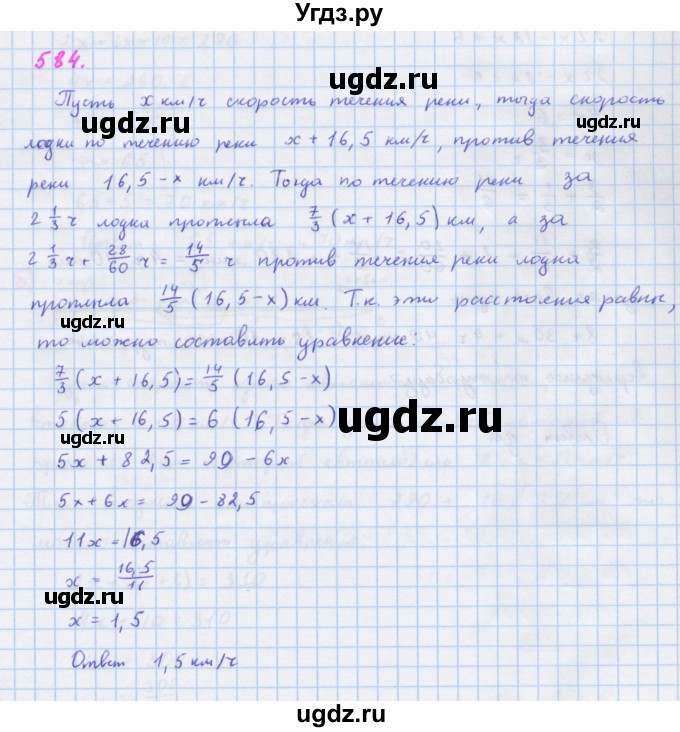 Угдз.ру
584.
Пусть x км/ч скорость течения реки, тогда скорость
лодки по течению реки x + 16,5 км/ч, против течения
реки 16,5 - x км/ч. Тогда по течению реки за
2 1/3 ч лодка проплыла 7/3 (x + 16,5) км, а за
2 1/3 ч + 28/60 ч = 14/5 ч против течения реки лодка
проплыла 14/5 (16,5 - x) км. Т.к. эти расстояния равны,
то можно составить уравнение:
7/3 (x + 16,5) = 14/5 (16,5 - x)
5 (x + 16,5) = 6 (16,5 - x)
5x + 82,5 = 99 - 6x
5x + 6x = 99 - 82,5
11x = 16,5
x = 16,5/11
x = 1,5
Ответ 1,5 км/ч
ugdz.ru
ugdz.ru
ugdz.ru
ugdz.ru
ugdz.ru
ugdz.ru
ugdz.ru
ugdz.ru
ugdz.ru
ugdz.ru